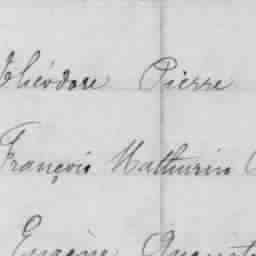 Théodore Pierre
François Mathurin
Eugène